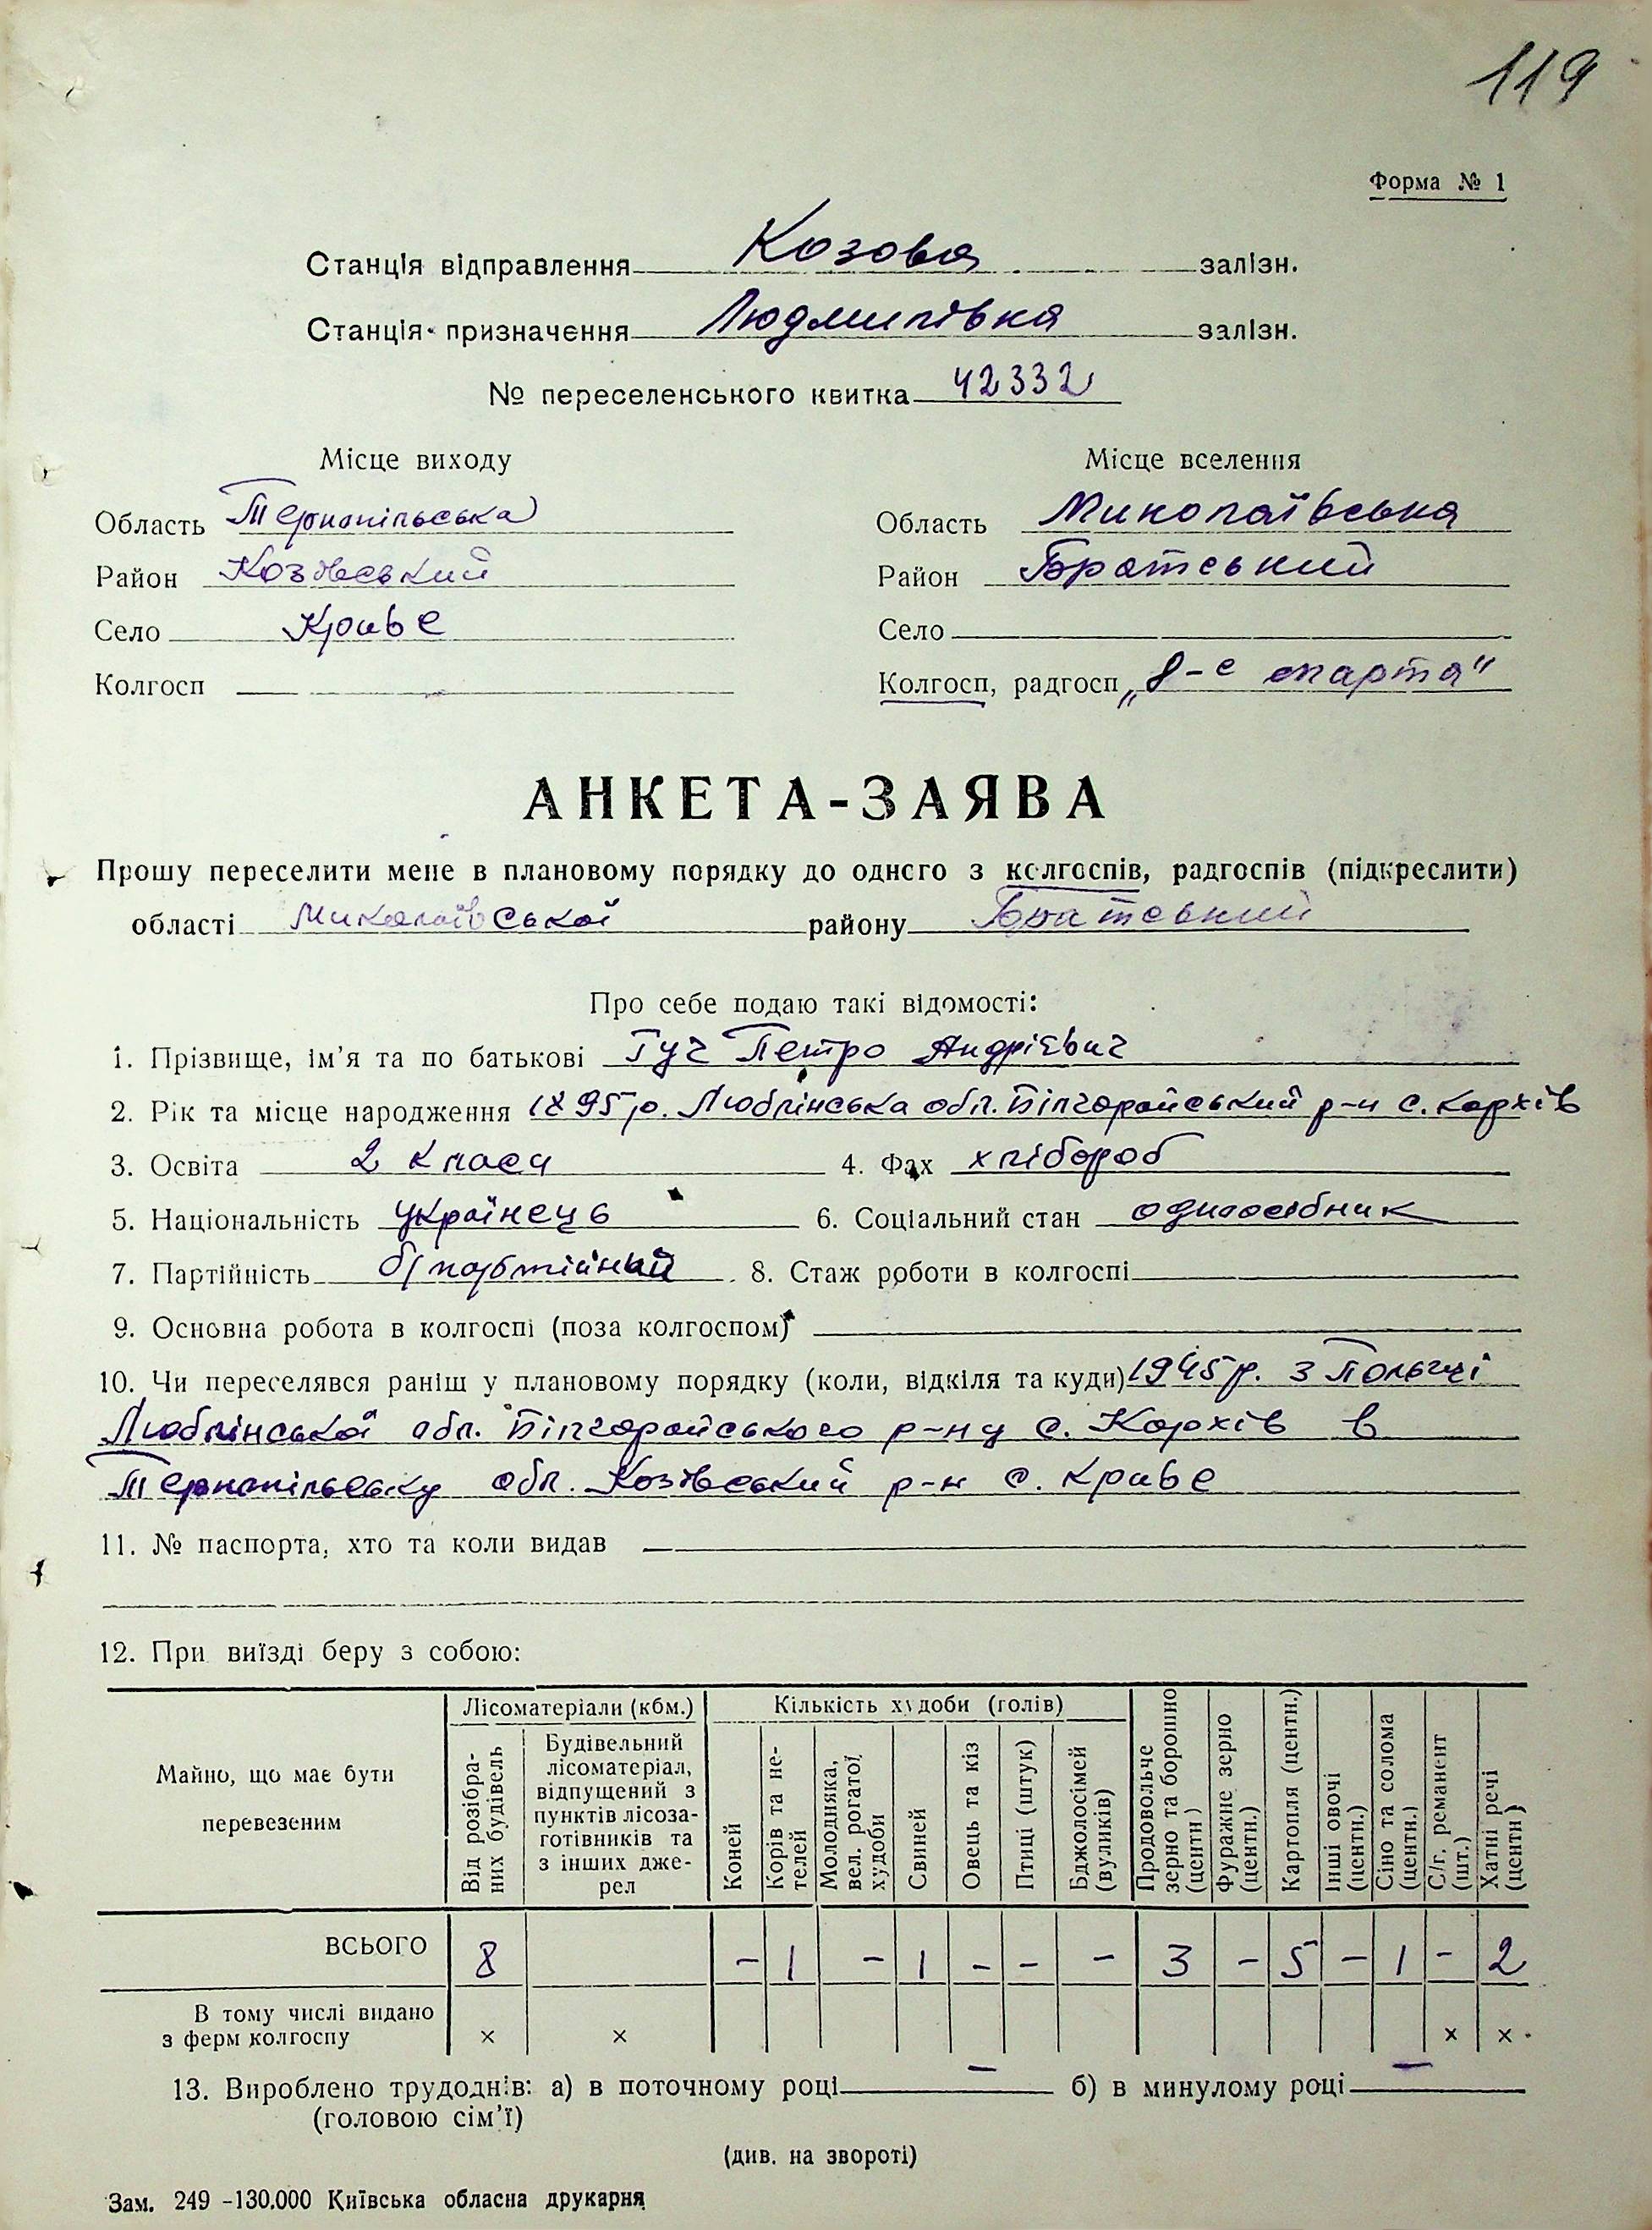 119
Форма № 1
Станція відправлення Козова залізн.
Станція призначення Людмилівка залізн.
№ переселенського квитка 42332
Місце виходу
Область Тернопільська
Район Козівський
Село Криве
Колгосп —
Місце вселення
Область Миколаївська
Район Братський
Село
Колгосп, радгосп „8-е марта"
АНКЕТА-ЗАЯВА
Прошу переселити мене в плановому порядку до одного з колгоспів, радгоспів (підкреслити)
області Миколаївської району Братський
Про себе подаю такі відомості:
1. Прізвище, ім'я та по батькові Гуч Петро Андрієвич
2. Рік та місце народження 1895 р. Люблінська обл. Білгорайський р-н с. Корхів
3. Освіта 2 класи 4. Фах хлібороб
5. Національність українець 6. Соціальний стан одноосібник
7. Партійність б/партійний 8. Стаж роботи в колгоспі
9. Основна робота в колгоспі (поза колгоспом)
10. Чи переселявся раніш у плановому порядку (коли, відкіля та куди) 1945 р. з Польщі
Люблінської обл. Білгорайського р-ну с. Корхів в
Тернопільську обл. Козівський р-н с. Криве
11. № паспорта, хто та коли видав —
12. При виїзді беру з собою:
Майно, що має бути перевезеним
Лісоматеріали (кбм.)
Від розібраних будівель
Будівельний лісоматеріал, відпущений з пунктів лісозаготівників та з інших джерел
Кількість худоби (голів)
Коней
Корів та нетелей
Молодняка, вел. рогатої худоби
Свиней
Овець та кіз
Птиці (штук)
Бджолосімей (вуликів)
Продовольче зерно та борошно (центн)
Фуражне зерно (центн.)
Картопля (центн.)
Інші овочі (центн.)
Сіно та солома (центн.)
С/г. реманент (шт.)
Хатні речі (центн)
ВСЬОГО 8 – 1 – 1 – – – 3 – 5 – 1 – 2
В тому числі видано з ферм колгоспу × × × ×
13. Вироблено трудоднів: а) в поточному році — б) в минулому році —
(головою сім'ї)
(див. на звороті)
Зам. 249 -130.000 Київська обласна друкарня